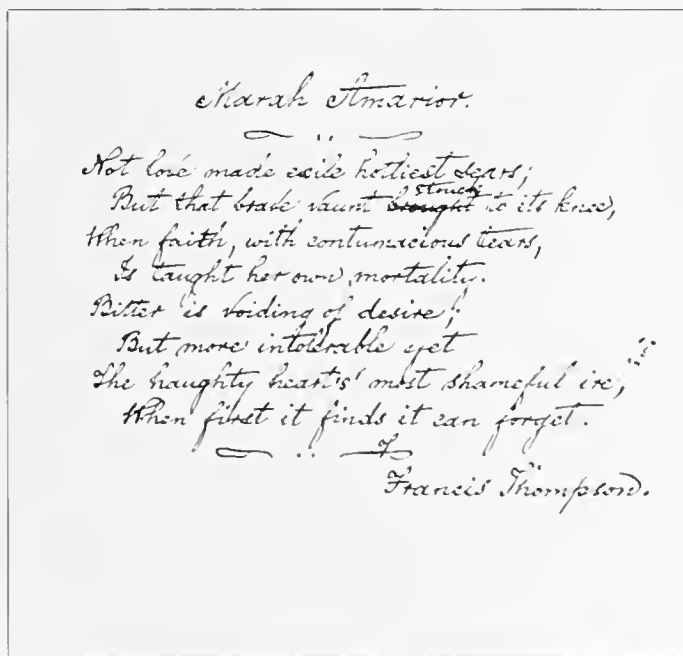 Marah Amarior.
Not love made exile hottiest sears;
But that brave vaunt struck to its knee,
When faith, with contumacious tears,
Is taught her own mortality.
Bitter is voiding of desire;
But more intolerable yet
The haughty heart's most shameful ire,
When first it finds it can forget.
Francis Thompson.